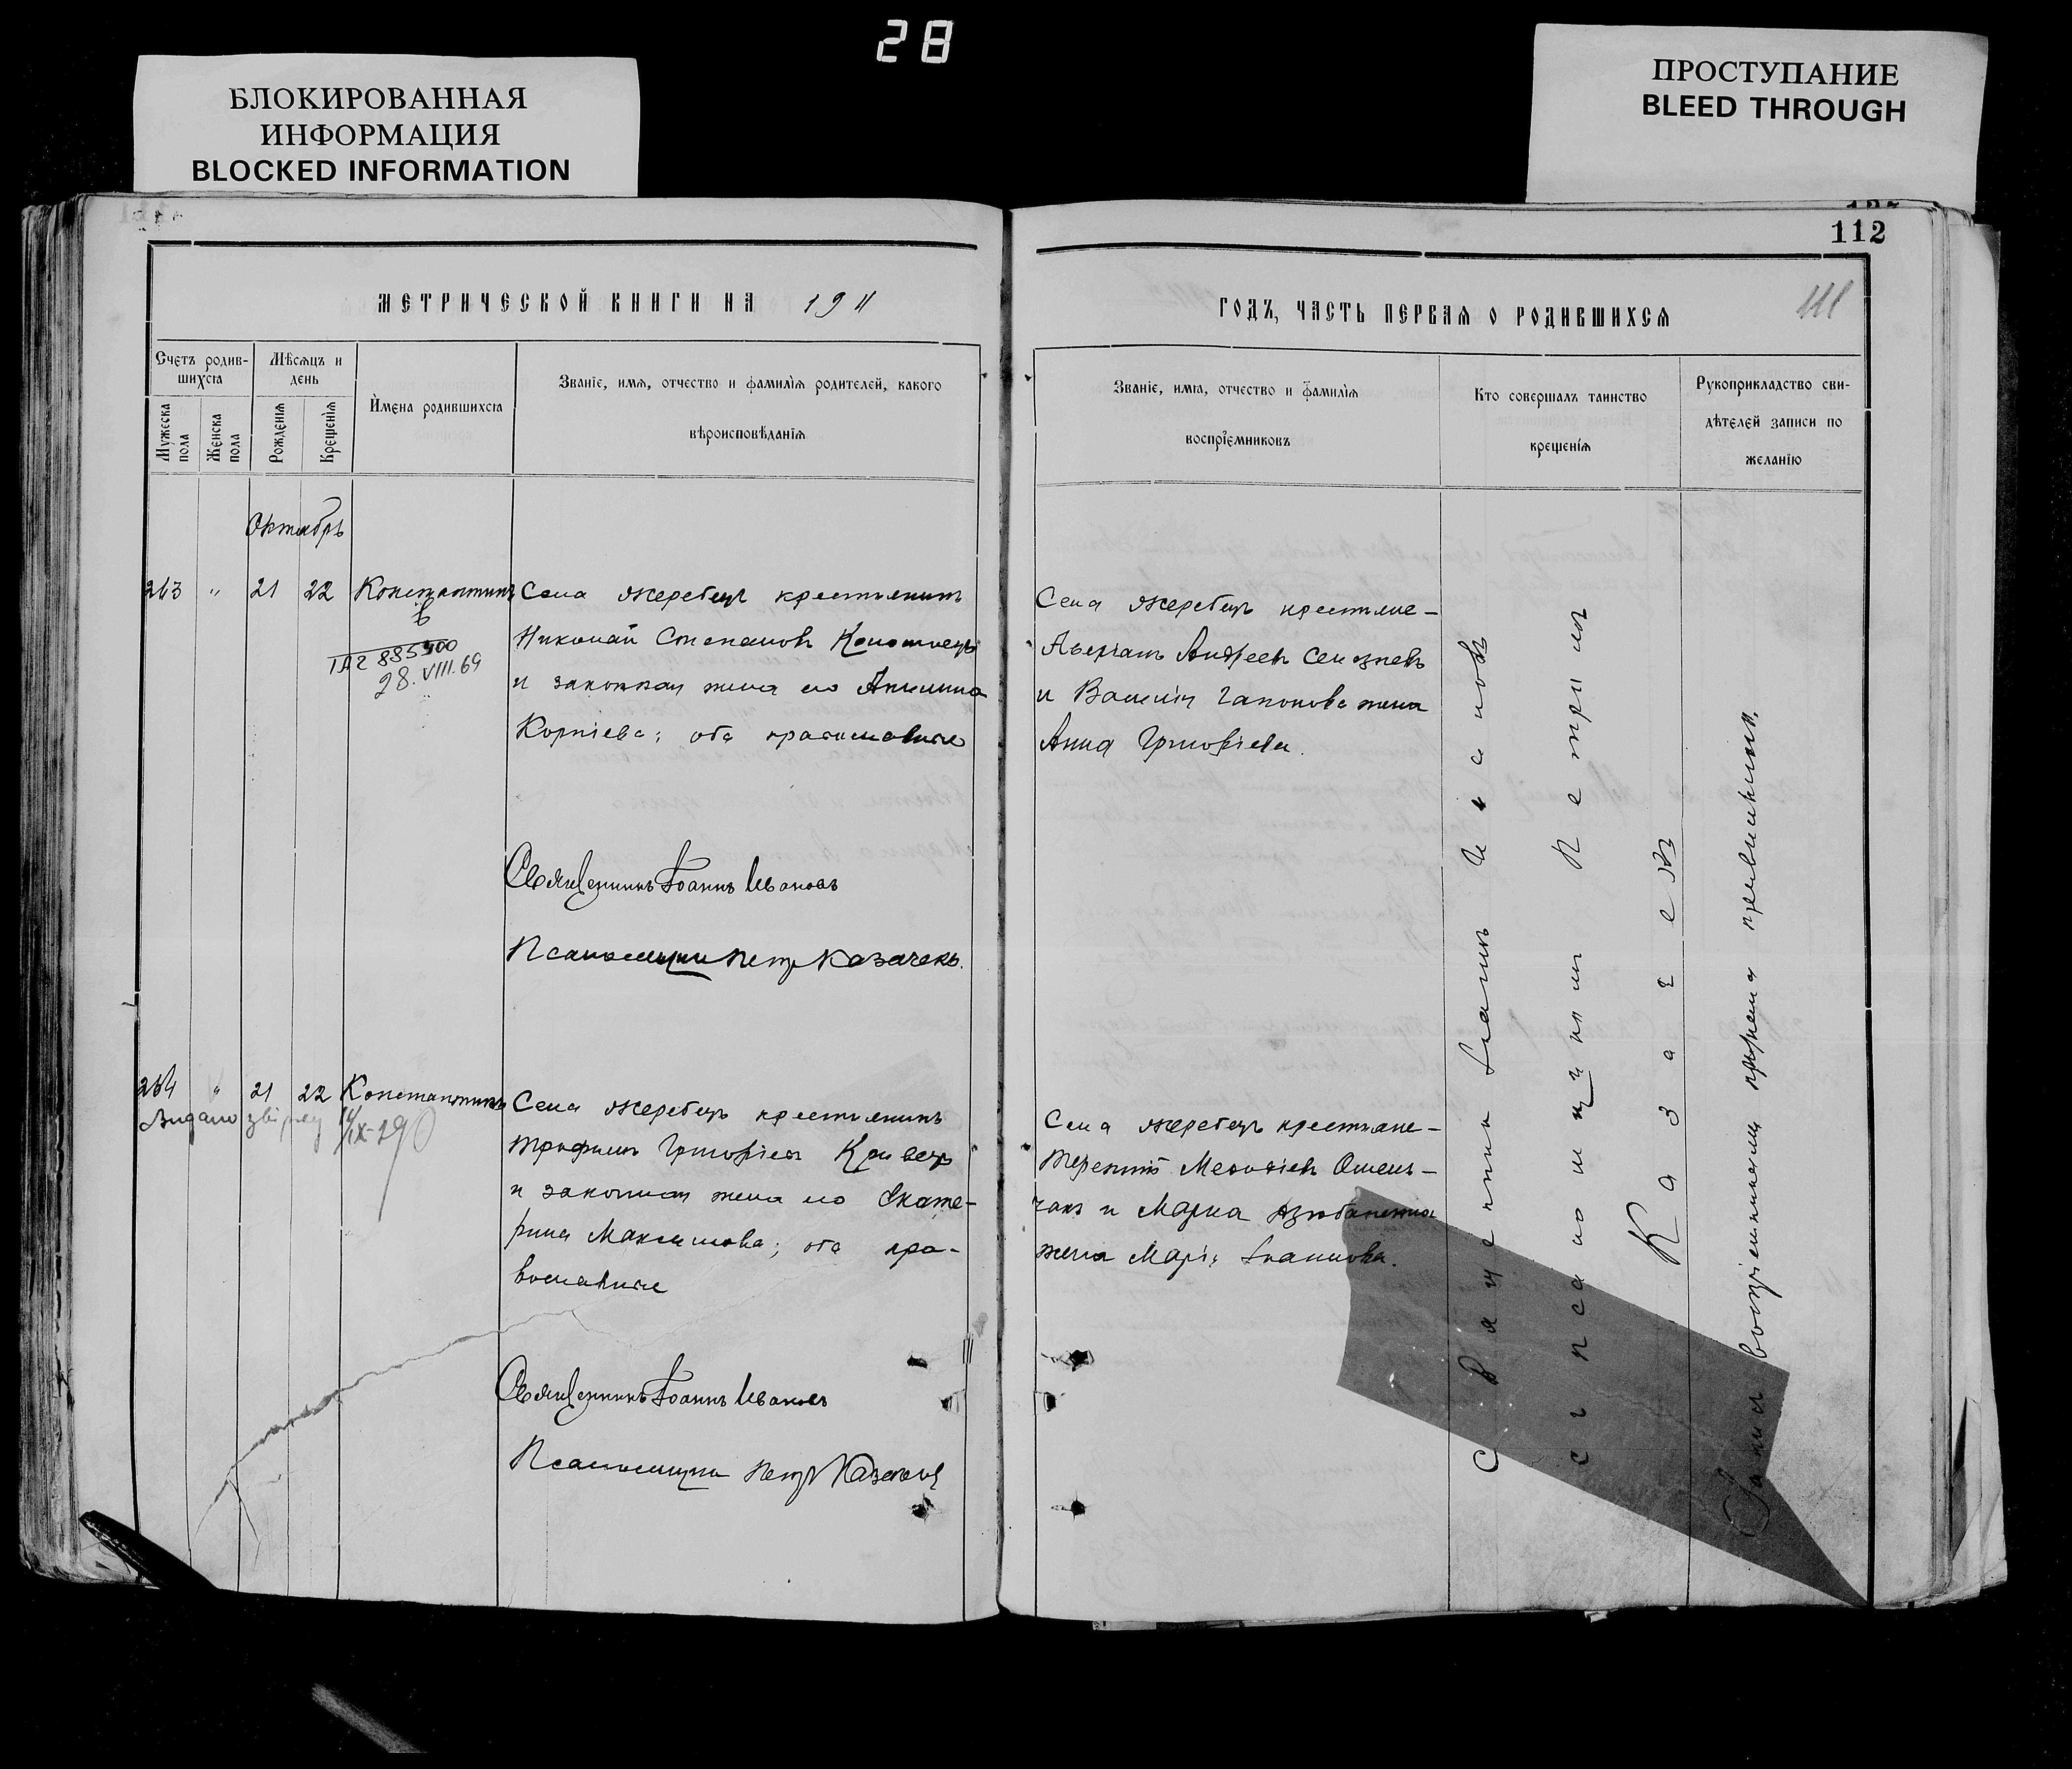 28
БЛОКИРОВАННАЯ
ИНФОРМАЦИЯ
BLOCKED INFORMATION
ПРОСТУПАНИЕ
BLEED THROUGH
112
111
МЕТРИЧЕСКОЙ КНИГИ НА 1911
Счетъ родив-
шихся
Мѣсяцъ и
день
Мужеска
пола
Женска
пола
Рожденія
Крещенія
Имена родившихся
Званіе, имя, отчество и фамилія родителей, какого
вѣроисповѣданія
Октябрь
263 " 21 22 Константинъ
885900
28.VIII.69
Села жеребецъ крестьянинъ
Николай Степановъ
и законная жена его Акилина
Корніева; оба православные
Священникъ Іоаннъ Ивановъ
Псаломщикъ Петр Казачекъ.
264 " 21 22 Константинъ
Видано
IX-29
Села жеребецъ крестьянинъ
Трофимъ Григоріевъ Кривецъ
и законная жена его Екате-
рина Максимова; оба пра-
вославные
Священникъ Іоаннъ Ивановъ
Псаломщикъ Петр Казачекъ
ГОДЪ, ЧАСТЬ ПЕРВАЯ О РОДИВШИХСЯ
Званіе, имя, отчество и фамилія
воспріемниковъ
Кто совершалъ таинство
крещенія
Рукоприкладство сви-
дѣтелей записи по
желанію
Села жеребецъ крестьяне-
Аверіанъ Андреевъ Селезневъ
и Василія Гапонова жена
Анна Григоріева.
Села жеребецъ крестьяне-
Терентій
и Марка
жена Марія Іванова.
Священникъ Іоаннъ Ивановъ
съ псаломщикомъ Петромъ
Казачекъ
воспріемниками